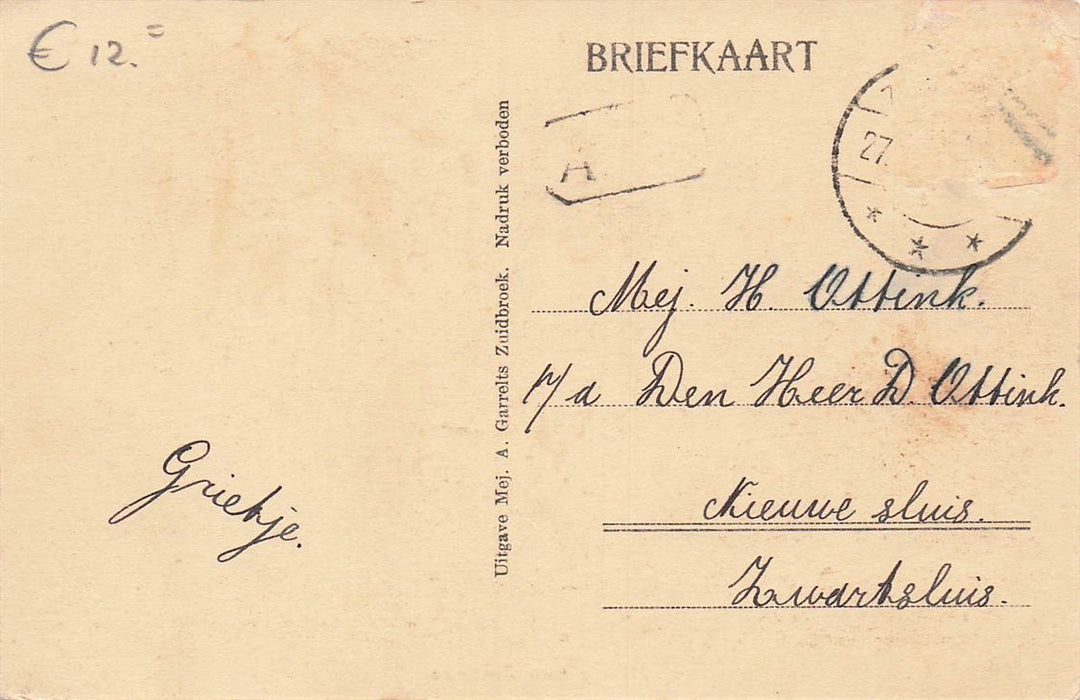 € 12.=
BRIEFKAART
A
27.
Uitgave Mej. A. Garrelts Zuidbroek. Nadruk verboden
Mej. H. Ottink.
p/a Den Heer D. Ottink.
Nieuwe sluis.
Zwartsluis.
Grietje.